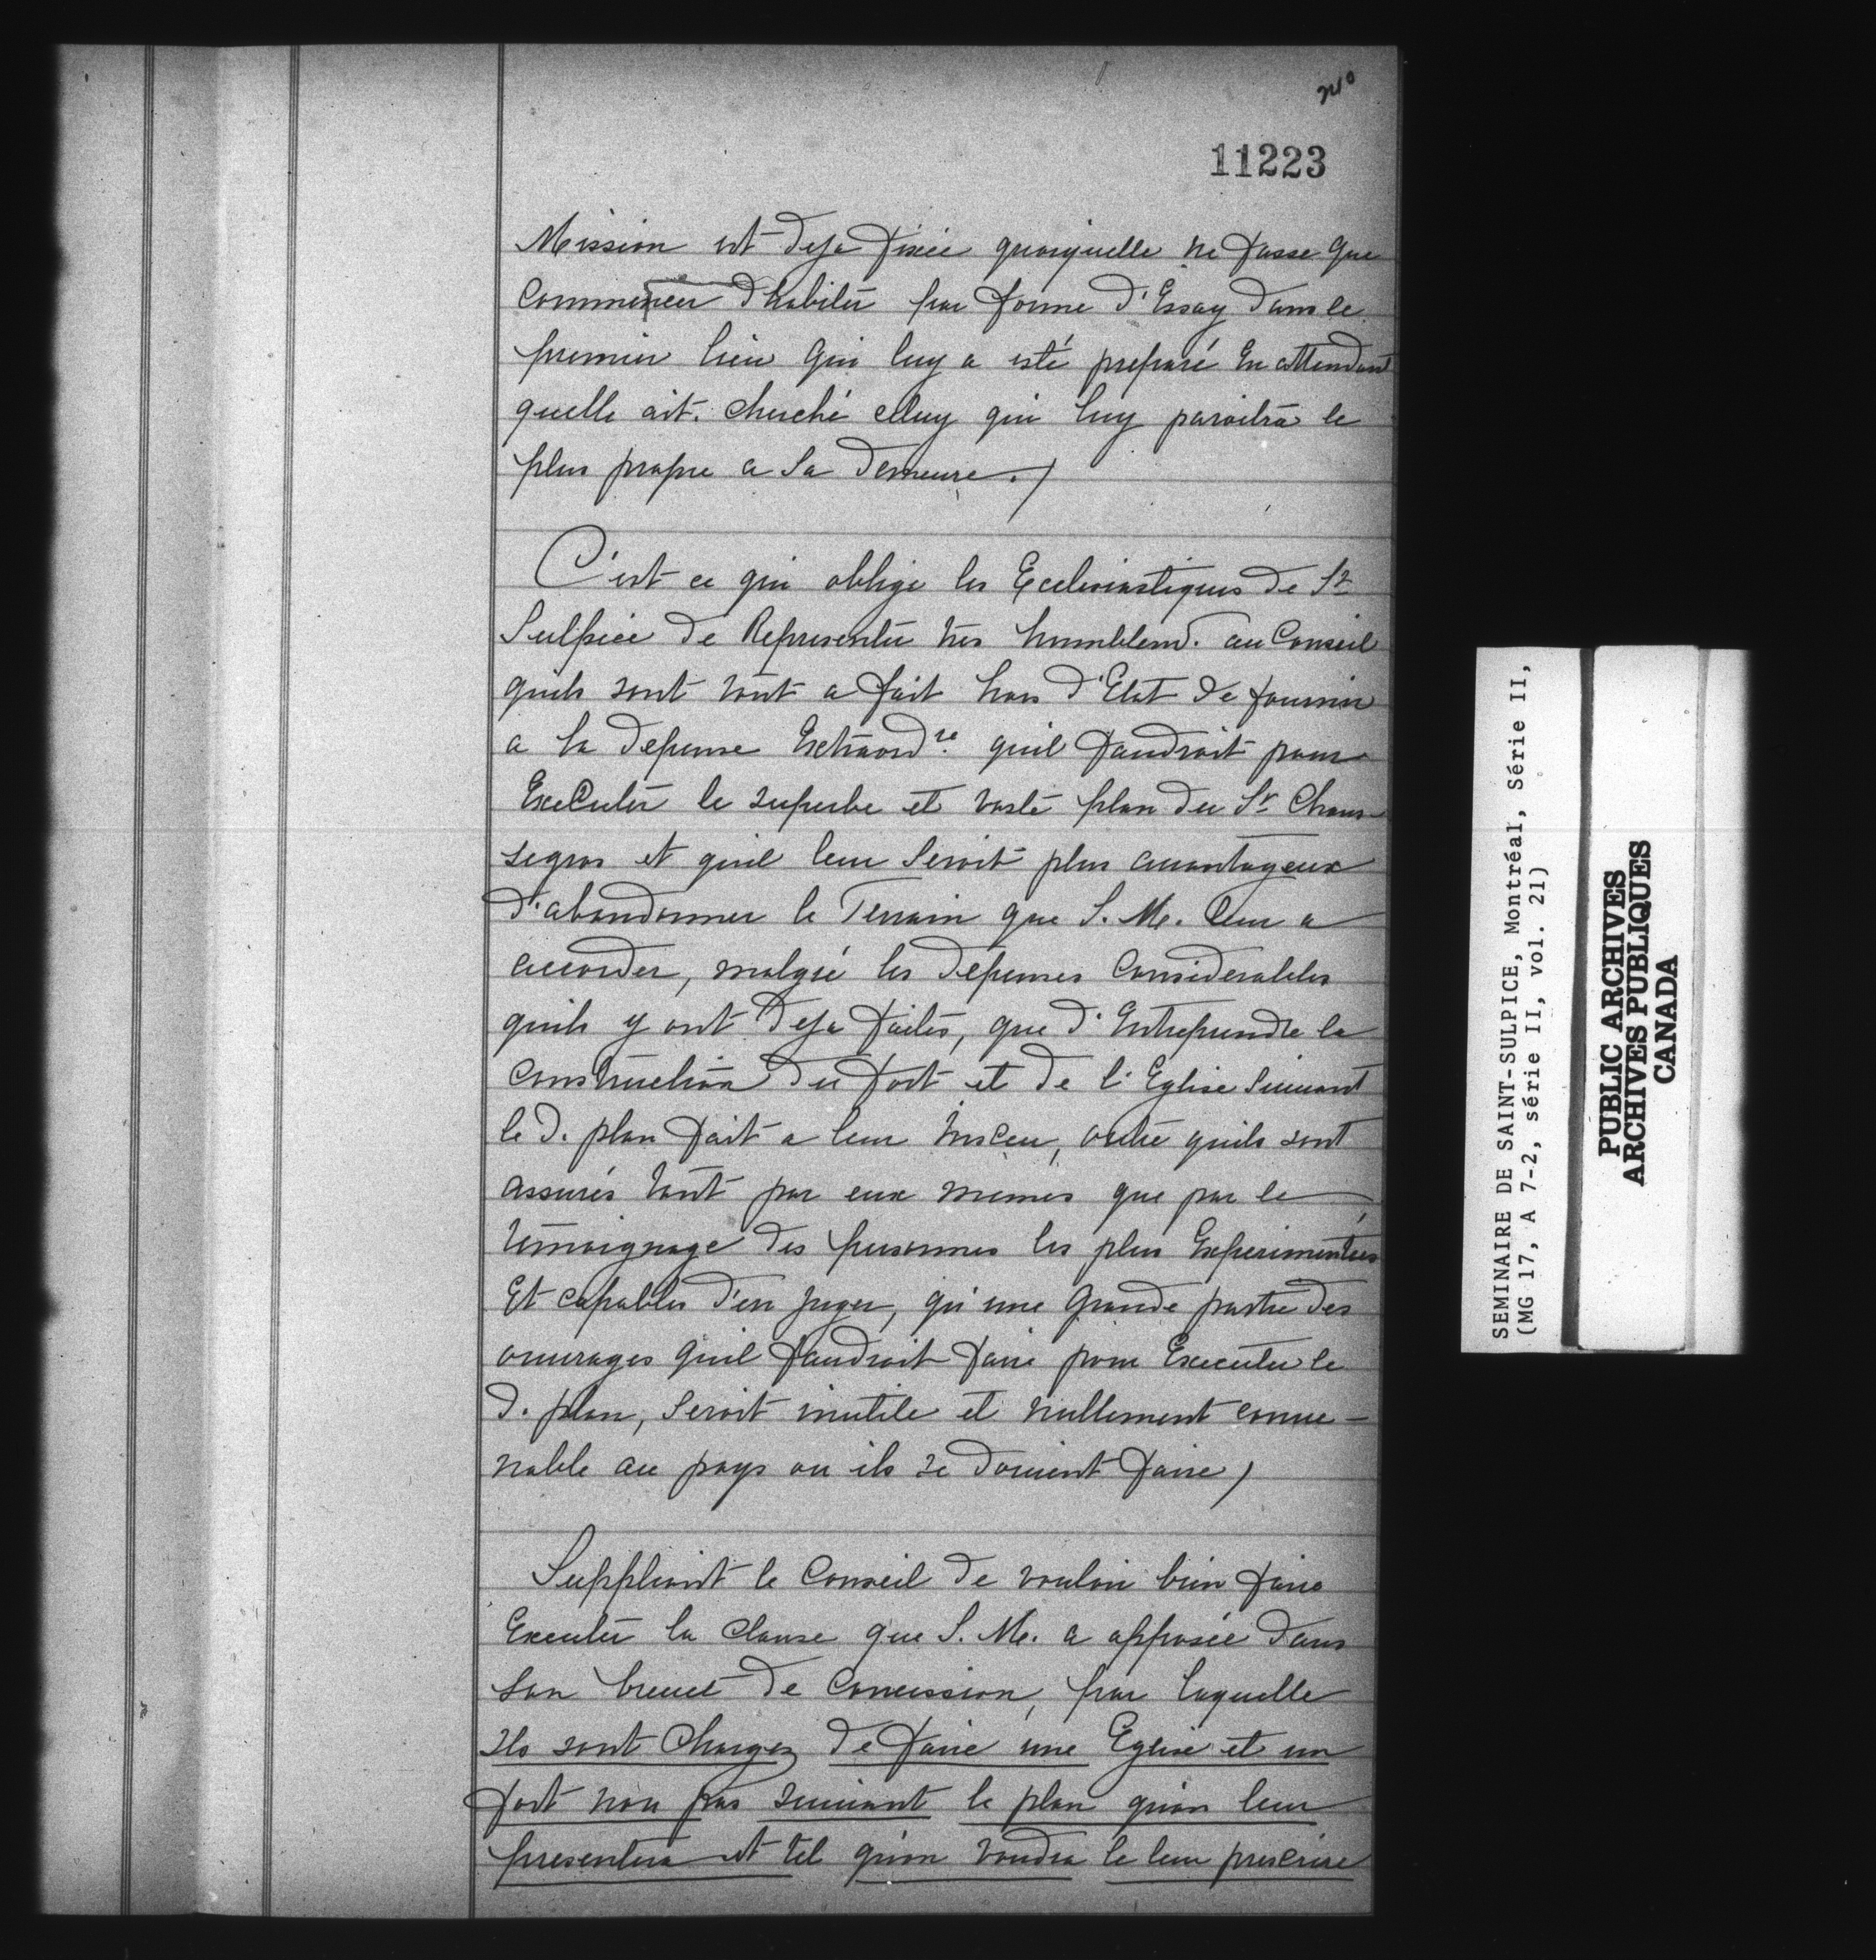 11223
Mission est deja fixée quoiquelle ne fasse que
commencer d'habiter par forme d'Essay dans le
premier lieu qui luy a esté preparé En attendant
quelle ait cherché celuy qui luy paroitra le
plus propre a sa demeure./
C'est ce qui oblige les Ecclesiastiques de St
Sulpice de Representer tres humblemt. au Conseil
quils sont tout a fait hors d'Etat de fournir
a la depense Extraordre. quil faudroit pour
Executer le superbe et vaste plan du Sr Chaus-
segros et quil leur seroit plus auantageux
d'abandonner le Terrain que S. M. leur a
accorder, malgré les depenses Considerables
quils y ont deja faites, que d'Entreprendre la
Construction du fort et de l'Eglise suiuant
le d. plan fait a leur insceu, outre quils sont
assurés tant par eux memes que par le
temoignage des personnes les plus Experimentées
Et capables d'en juger, qu'une grande partie des
ouurages quil faudroit faire pour Executer le
d. plan, seroit inutile et nullement conue-
nable au pays ou ils se doiuent faire /
Suppliant le Conseil de vouloir bien faire
Executer la clause que S. M. a apposée dans
son breuet de Concession, par laquelle
ils sont Chargez de faire une Eglise et un
fort non pas suiuant le plan qu'on leur
presentera et tel qu'on voudra le leur prescrire
SEMINAIRE DE SAINT-SULPICE, Montréal, Série II,
(MG 17, A 7-2, série II, vol. 21)
PUBLIC ARCHIVES
ARCHIVES PUBLIQUES
CANADA